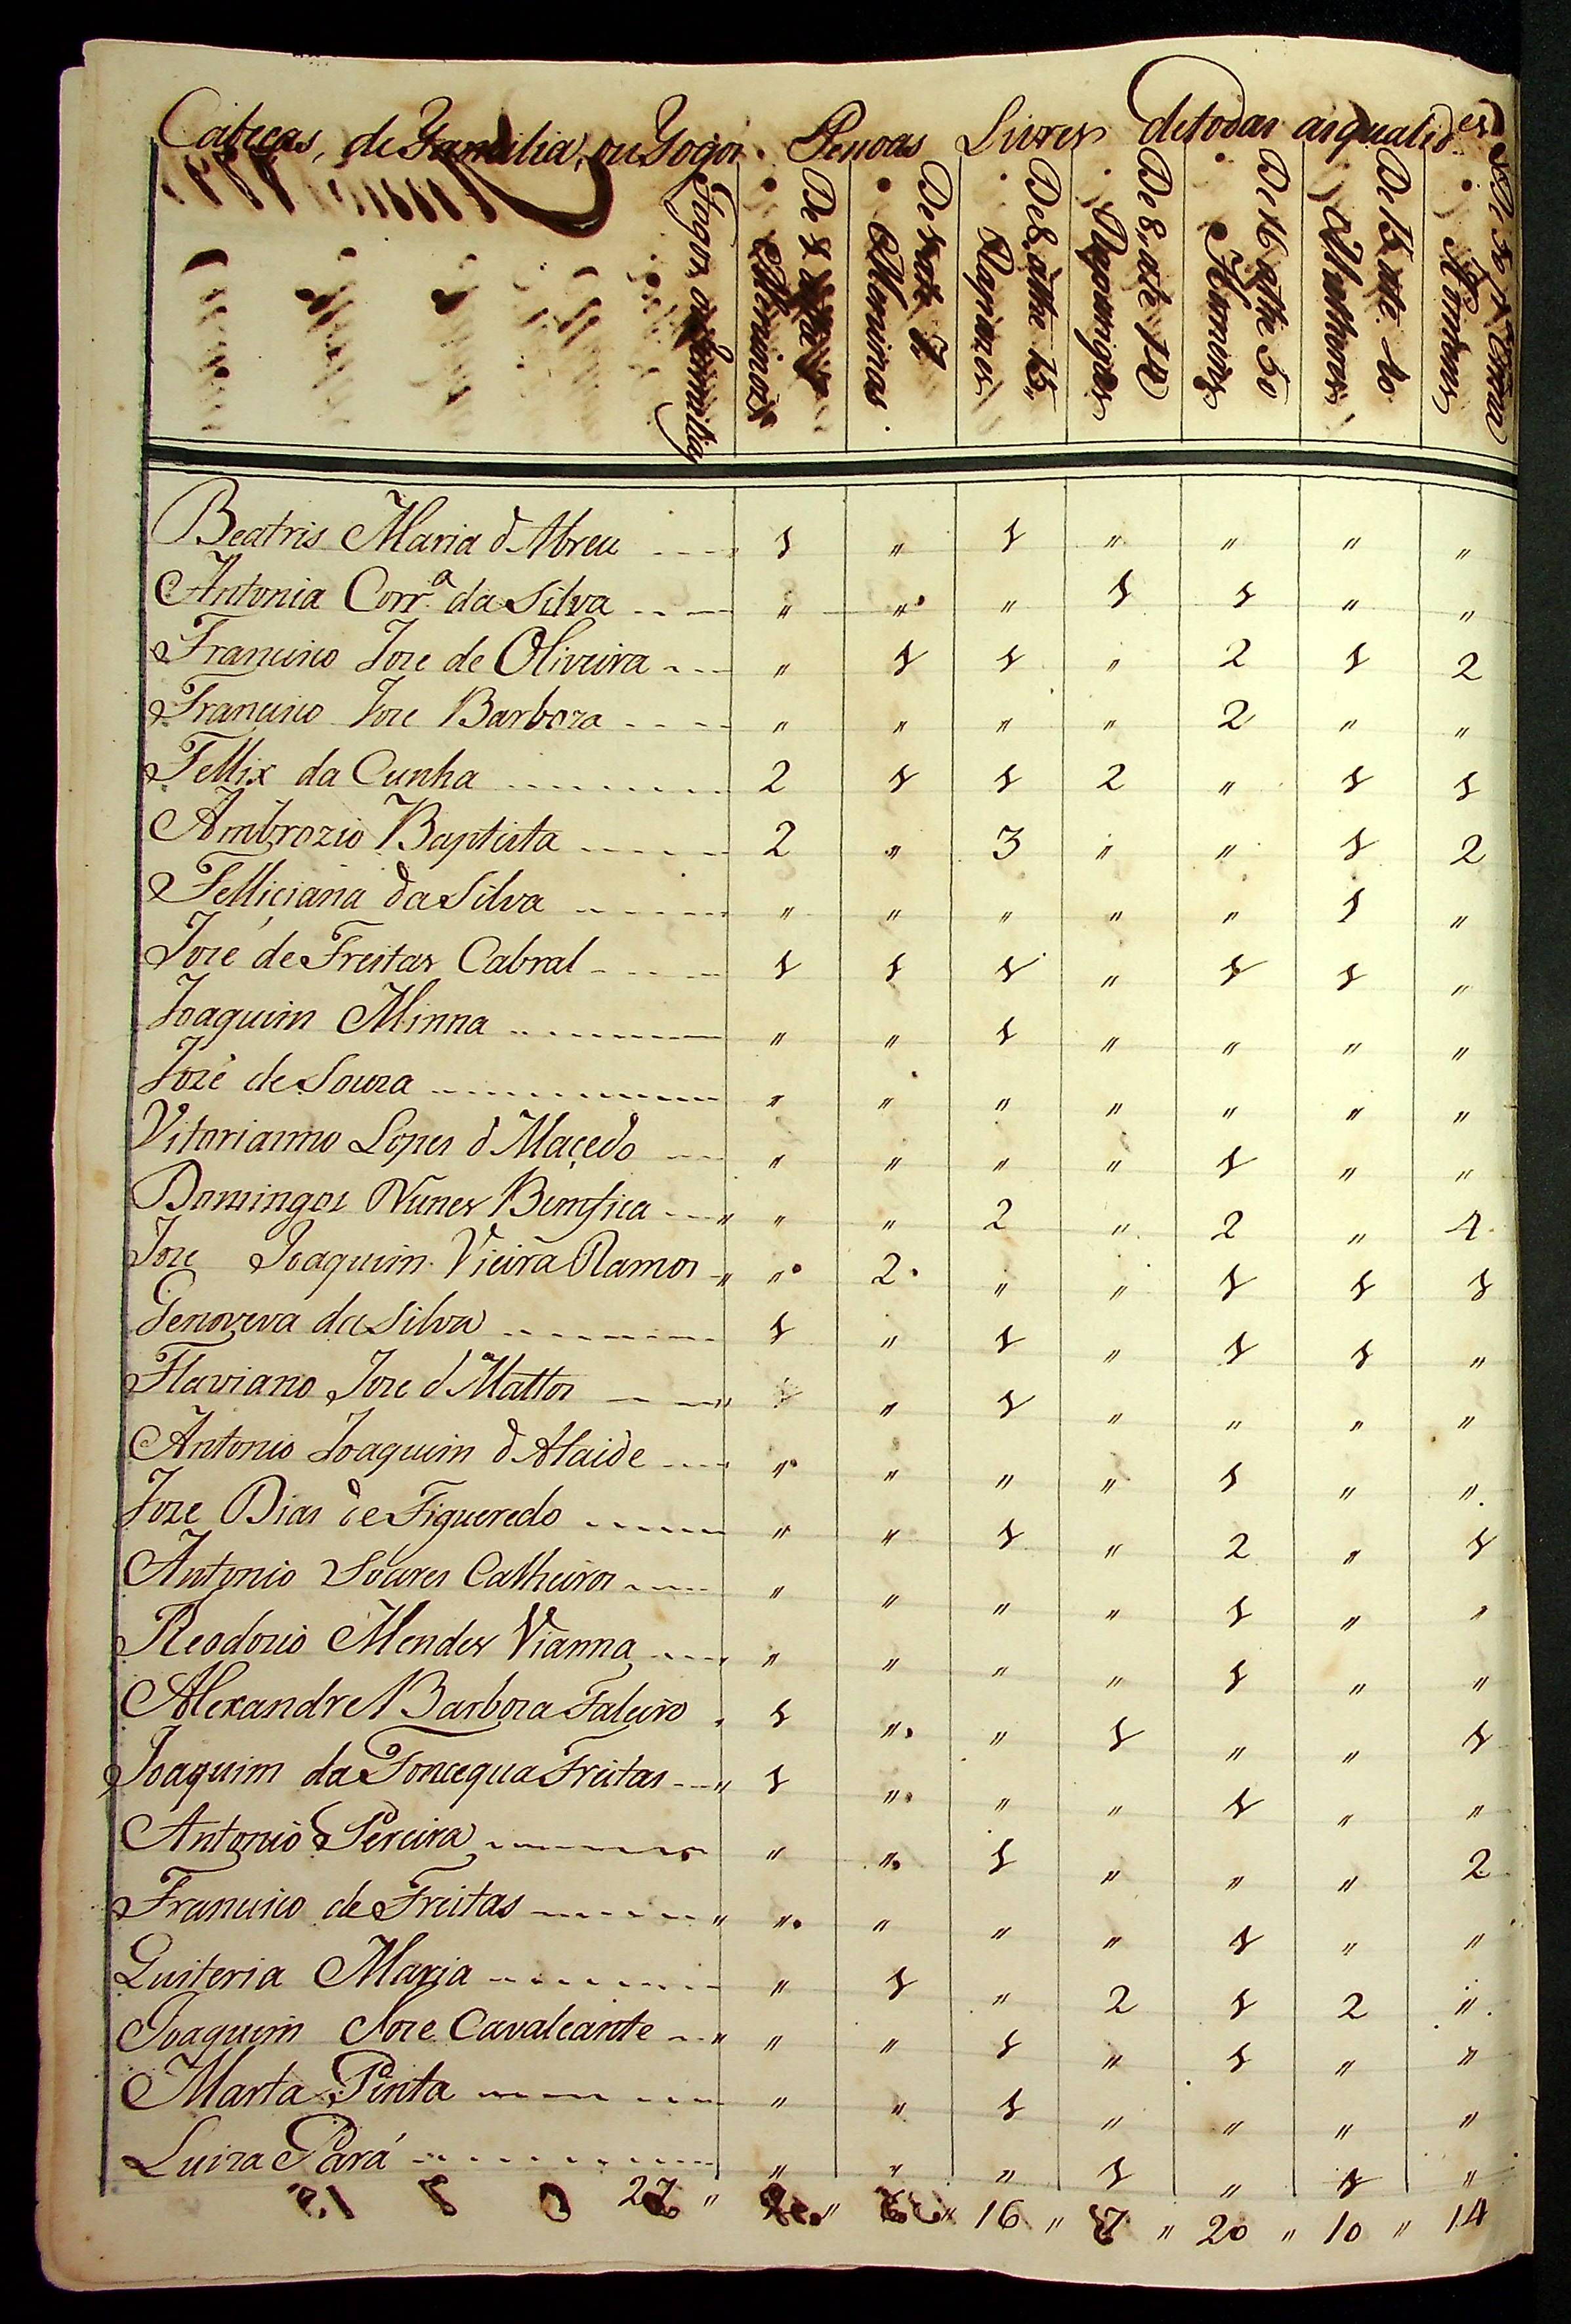 Cabeças, de Familia, ou Fogos. Pessoas Livres de todas as qualid.es
Fogos ou Familias
De 1 athe
Meninos
De 1 ate 7
Meninas.
De 8, athe 15,,
Rapazes
De 8, ate 14
Raparigas
De 16 athe 50
Homens
De 15 ate 40
Mulheres
Homens
Beatris Maria d Abreu 1 " 1 " " " "
Antonia Corr.a da Silva " " " 1 1 " "
Francisco Joze de Oliveira " 1 1 " 2 1 2
Francisco Joze Barboza " " " " 2 " "
Fellix da Cunha 2 1 1 2 " 1 1
Ambrozio Baptista 2 " 3 " " 1 2
Felliciana da Silva " " " " " 1 "
José de Freitas Cabral 1 1 1 " 1 1 "
Joaquim Minna " " 1 " " " "
José de Souza " " " " " " "
Vitorianno Lopes d Macedo " " " " 1 " "
Domingos Nunes Bemfica " " 2 " 2 " 4
Joze Joaquim Vieira Ramos " 2 " " 1 1 1
Genoveva da Silva 1 " 1 " 1 1 "
Flaviano Joze d Mattos " 1 " " " "
Antonio Joaquim d Ataide " " " " 1 " "
Joze Dias de Figueredo " " 1 " 2 " 1
Antonio Soares Calheiros " " " " 1 " "
Reodozio Mendes Vianna " " " " 1 " "
Alexandre Barboza Faleiro 1 " " 1 " " 1
Joaquim da Foncequa Freitas 1 " " " 1 " "
Antonio Pereira " " 1 " " " 2
Francisco de Freitas " " " " 1 " "
Quiteria Maria " 1 " 2 1 2 "
Joaquim Joze Cavalcante " " 1 " 1 " "
Marta Pinta " " 1 " " " "
Luiza Pará " " " 1 " 1 "
27 " " " 16 " 7 " 20 " 10 " 14